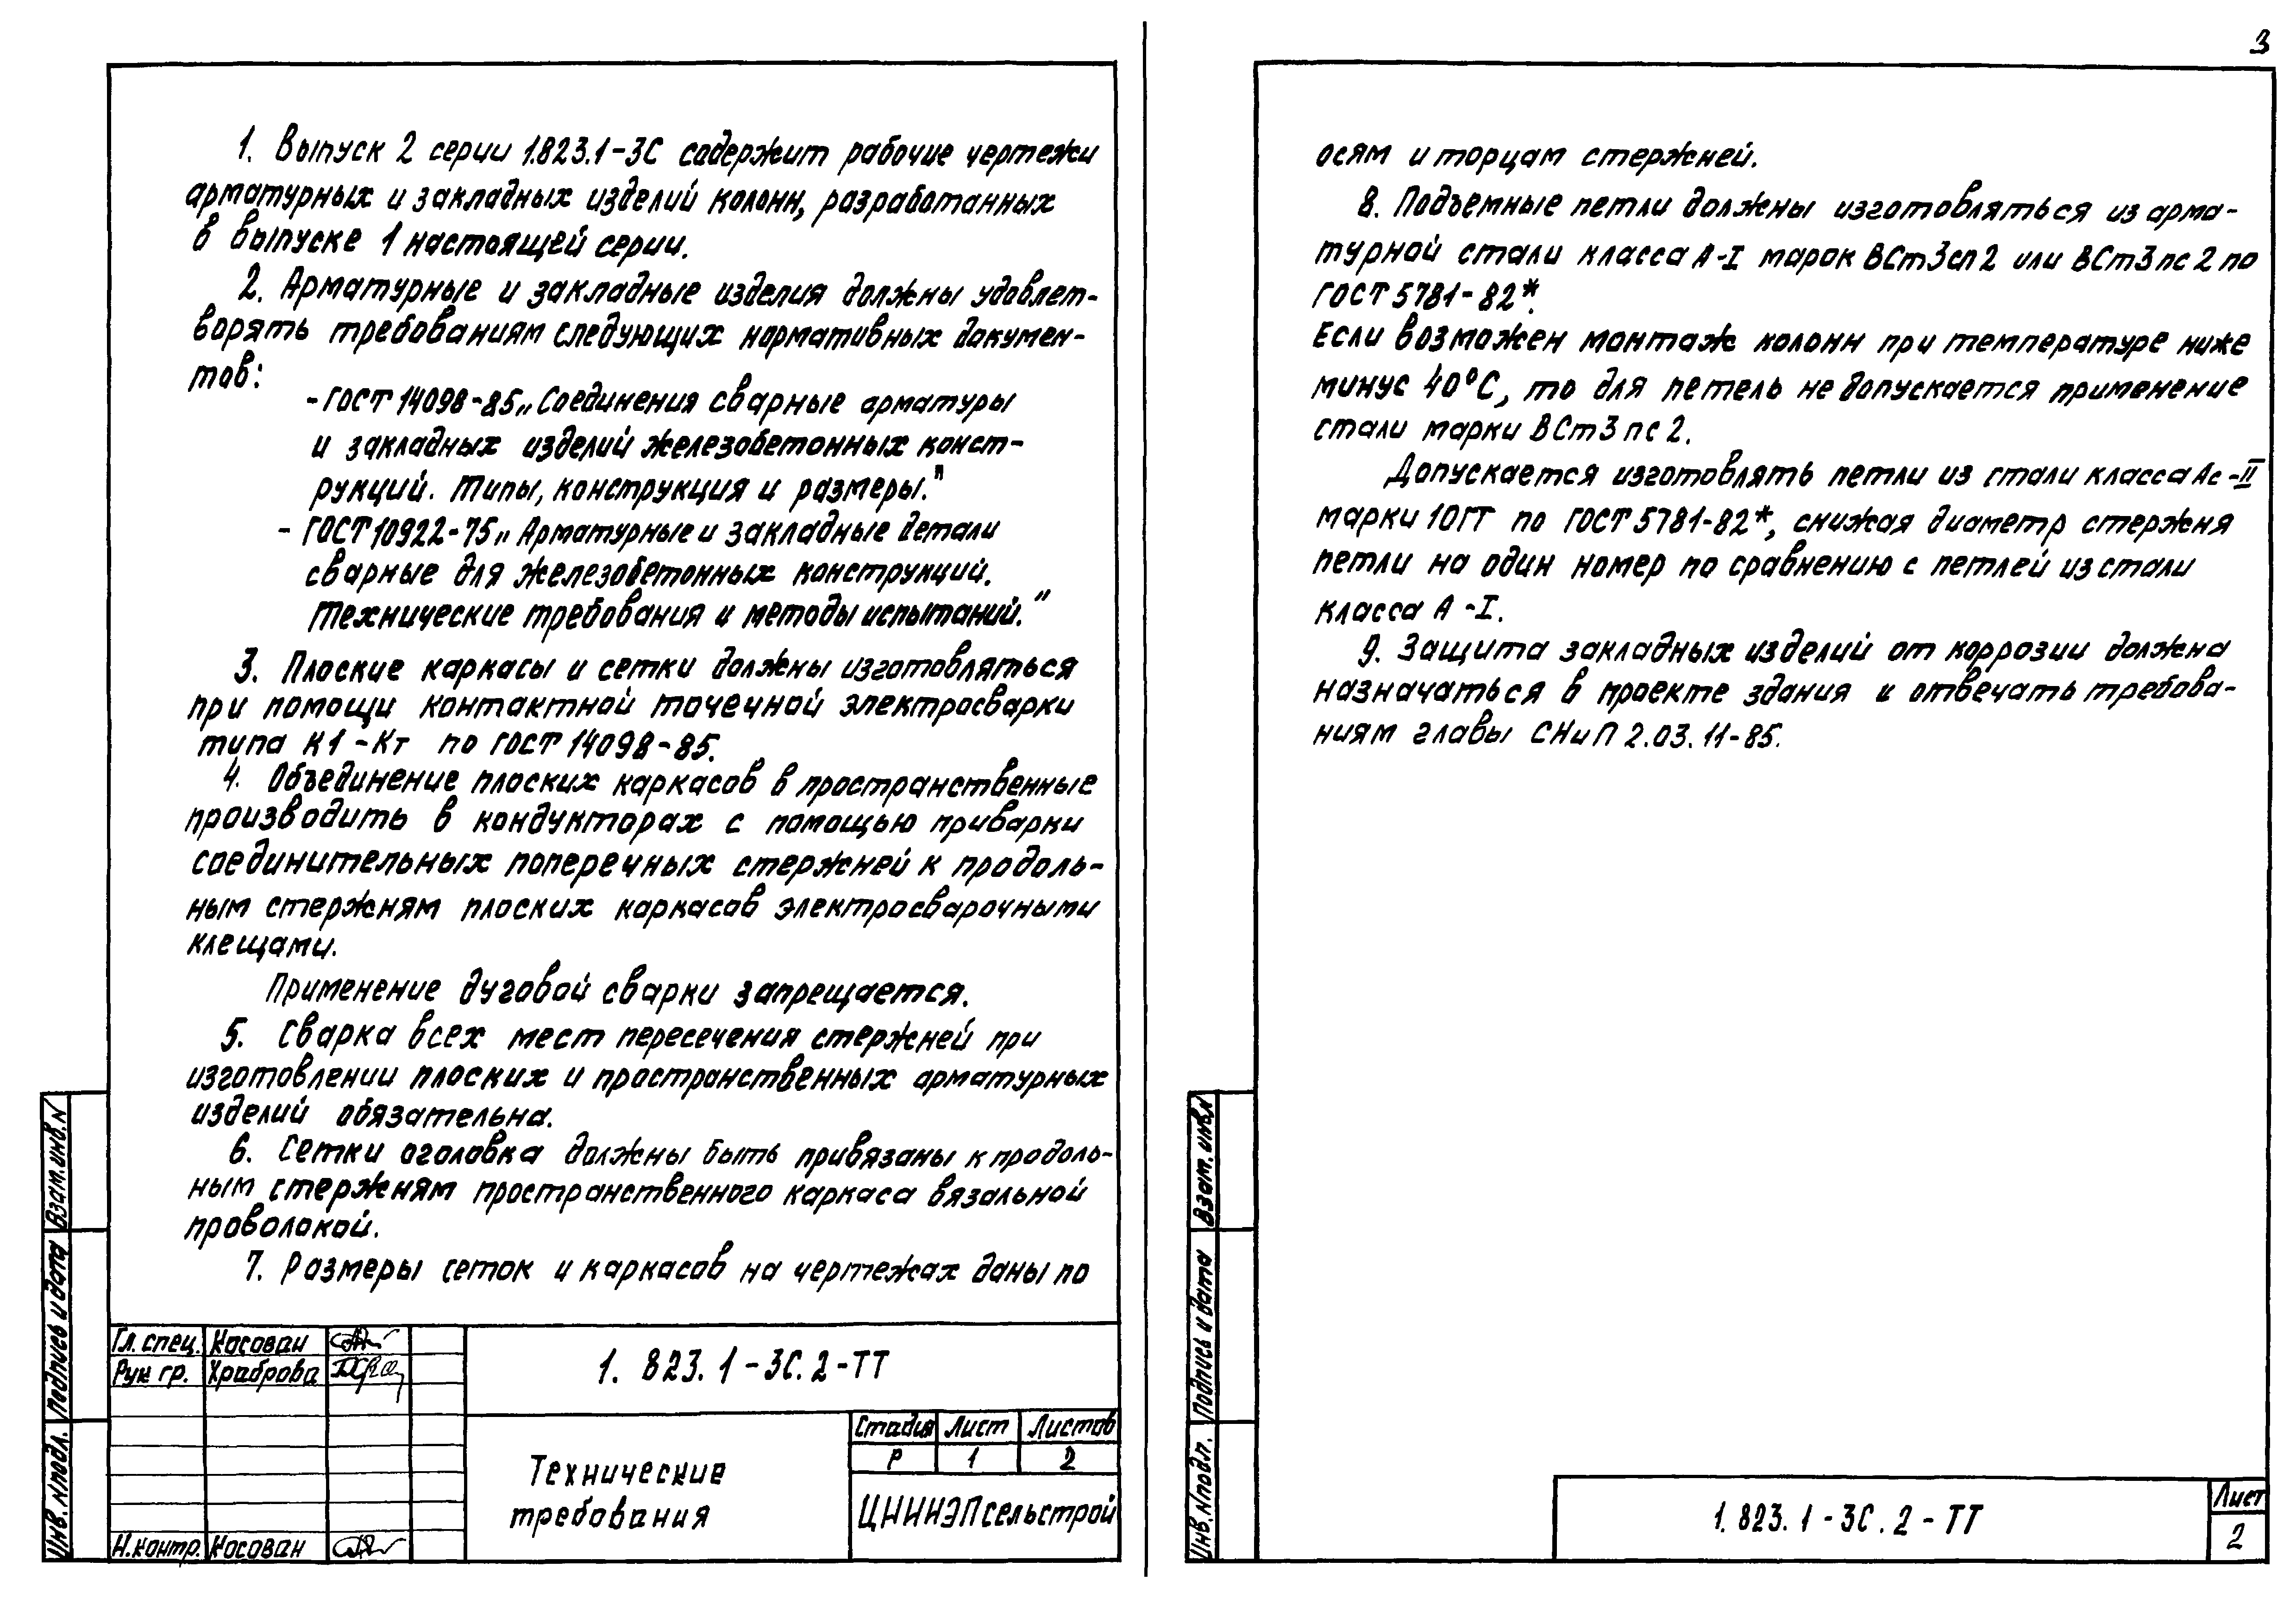 3
1. Выпуск 2 серии 1.823.1-3С содержит рабочие чертежи
арматурных и закладных изделий колонн, разработанных
в выпуске 1 настоящей серии.
2. Арматурные и закладные изделия должны удовлет-
ворять требованиям следующих нормативных докумен-
тов:
- ГОСТ 14098-85 „Соединения сварные арматуры
и закладных изделий железобетонных конст-
рукций. Типы, конструкция и размеры."
- ГОСТ 10922-75 „Арматурные и закладные детали
сварные для железобетонных конструкций.
Технические требования и методы испытаний."
3. Плоские каркасы и сетки должны изготовляться
при помощи контактной точечной электросварки
типа К1-Кт по ГОСТ 14098-85.
4. Объединение плоских каркасов в пространственные
производить в кондукторах с помощью приварки
соединительных поперечных стержней к продоль-
ным стержням плоских каркасов электросварочными
клещами.
Применение дуговой сварки запрещается.
5. Сварка всех мест пересечения стержней при
изготовлении плоских и пространственных арматурных
изделий обязательна.
6. Сетки оголовка должны быть привязаны к продоль-
ным стержням пространственного каркаса вязальной
проволокой.
7. Размеры сеток и каркасов на чертежах даны по
Гл. спец. Косован
Рук гр. Храброва
Н.контр. Косован
1. 823. 1 - 3С. 2 - ТТ
Технические
требования
Стадия Лист Листов
Р 1 2
ЦНИИЭПсельстрой
Взам.инв.N
Подпись и дата
Инв. Nподл.
осям и торцам стержней.
8. Подъемные петли должны изготовляться из арма-
турной стали класса А-I марок ВСт3сп2 или ВСт3пс2 по
ГОСТ 5781-82*.
Если возможен монтаж колонн при температуре ниже
минус 40°С, то для петель не допускается применение
стали марки ВСт3пс2.
Допускается изготовлять петли из стали класса Ас-II
марки 10ГТ по ГОСТ 5781-82*, снижая диаметр стержня
петли на один номер по сравнению с петлей из стали
класса А-I.
9. Защита закладных изделий от коррозии должна
назначаться в проекте здания и отвечать требова-
ниям главы СНиП 2.03.11-85.
Взам. инв.N
Подпись и дата
Инв. Nподл.
1. 823. 1 - 3С. 2 - ТТ
Лист
2